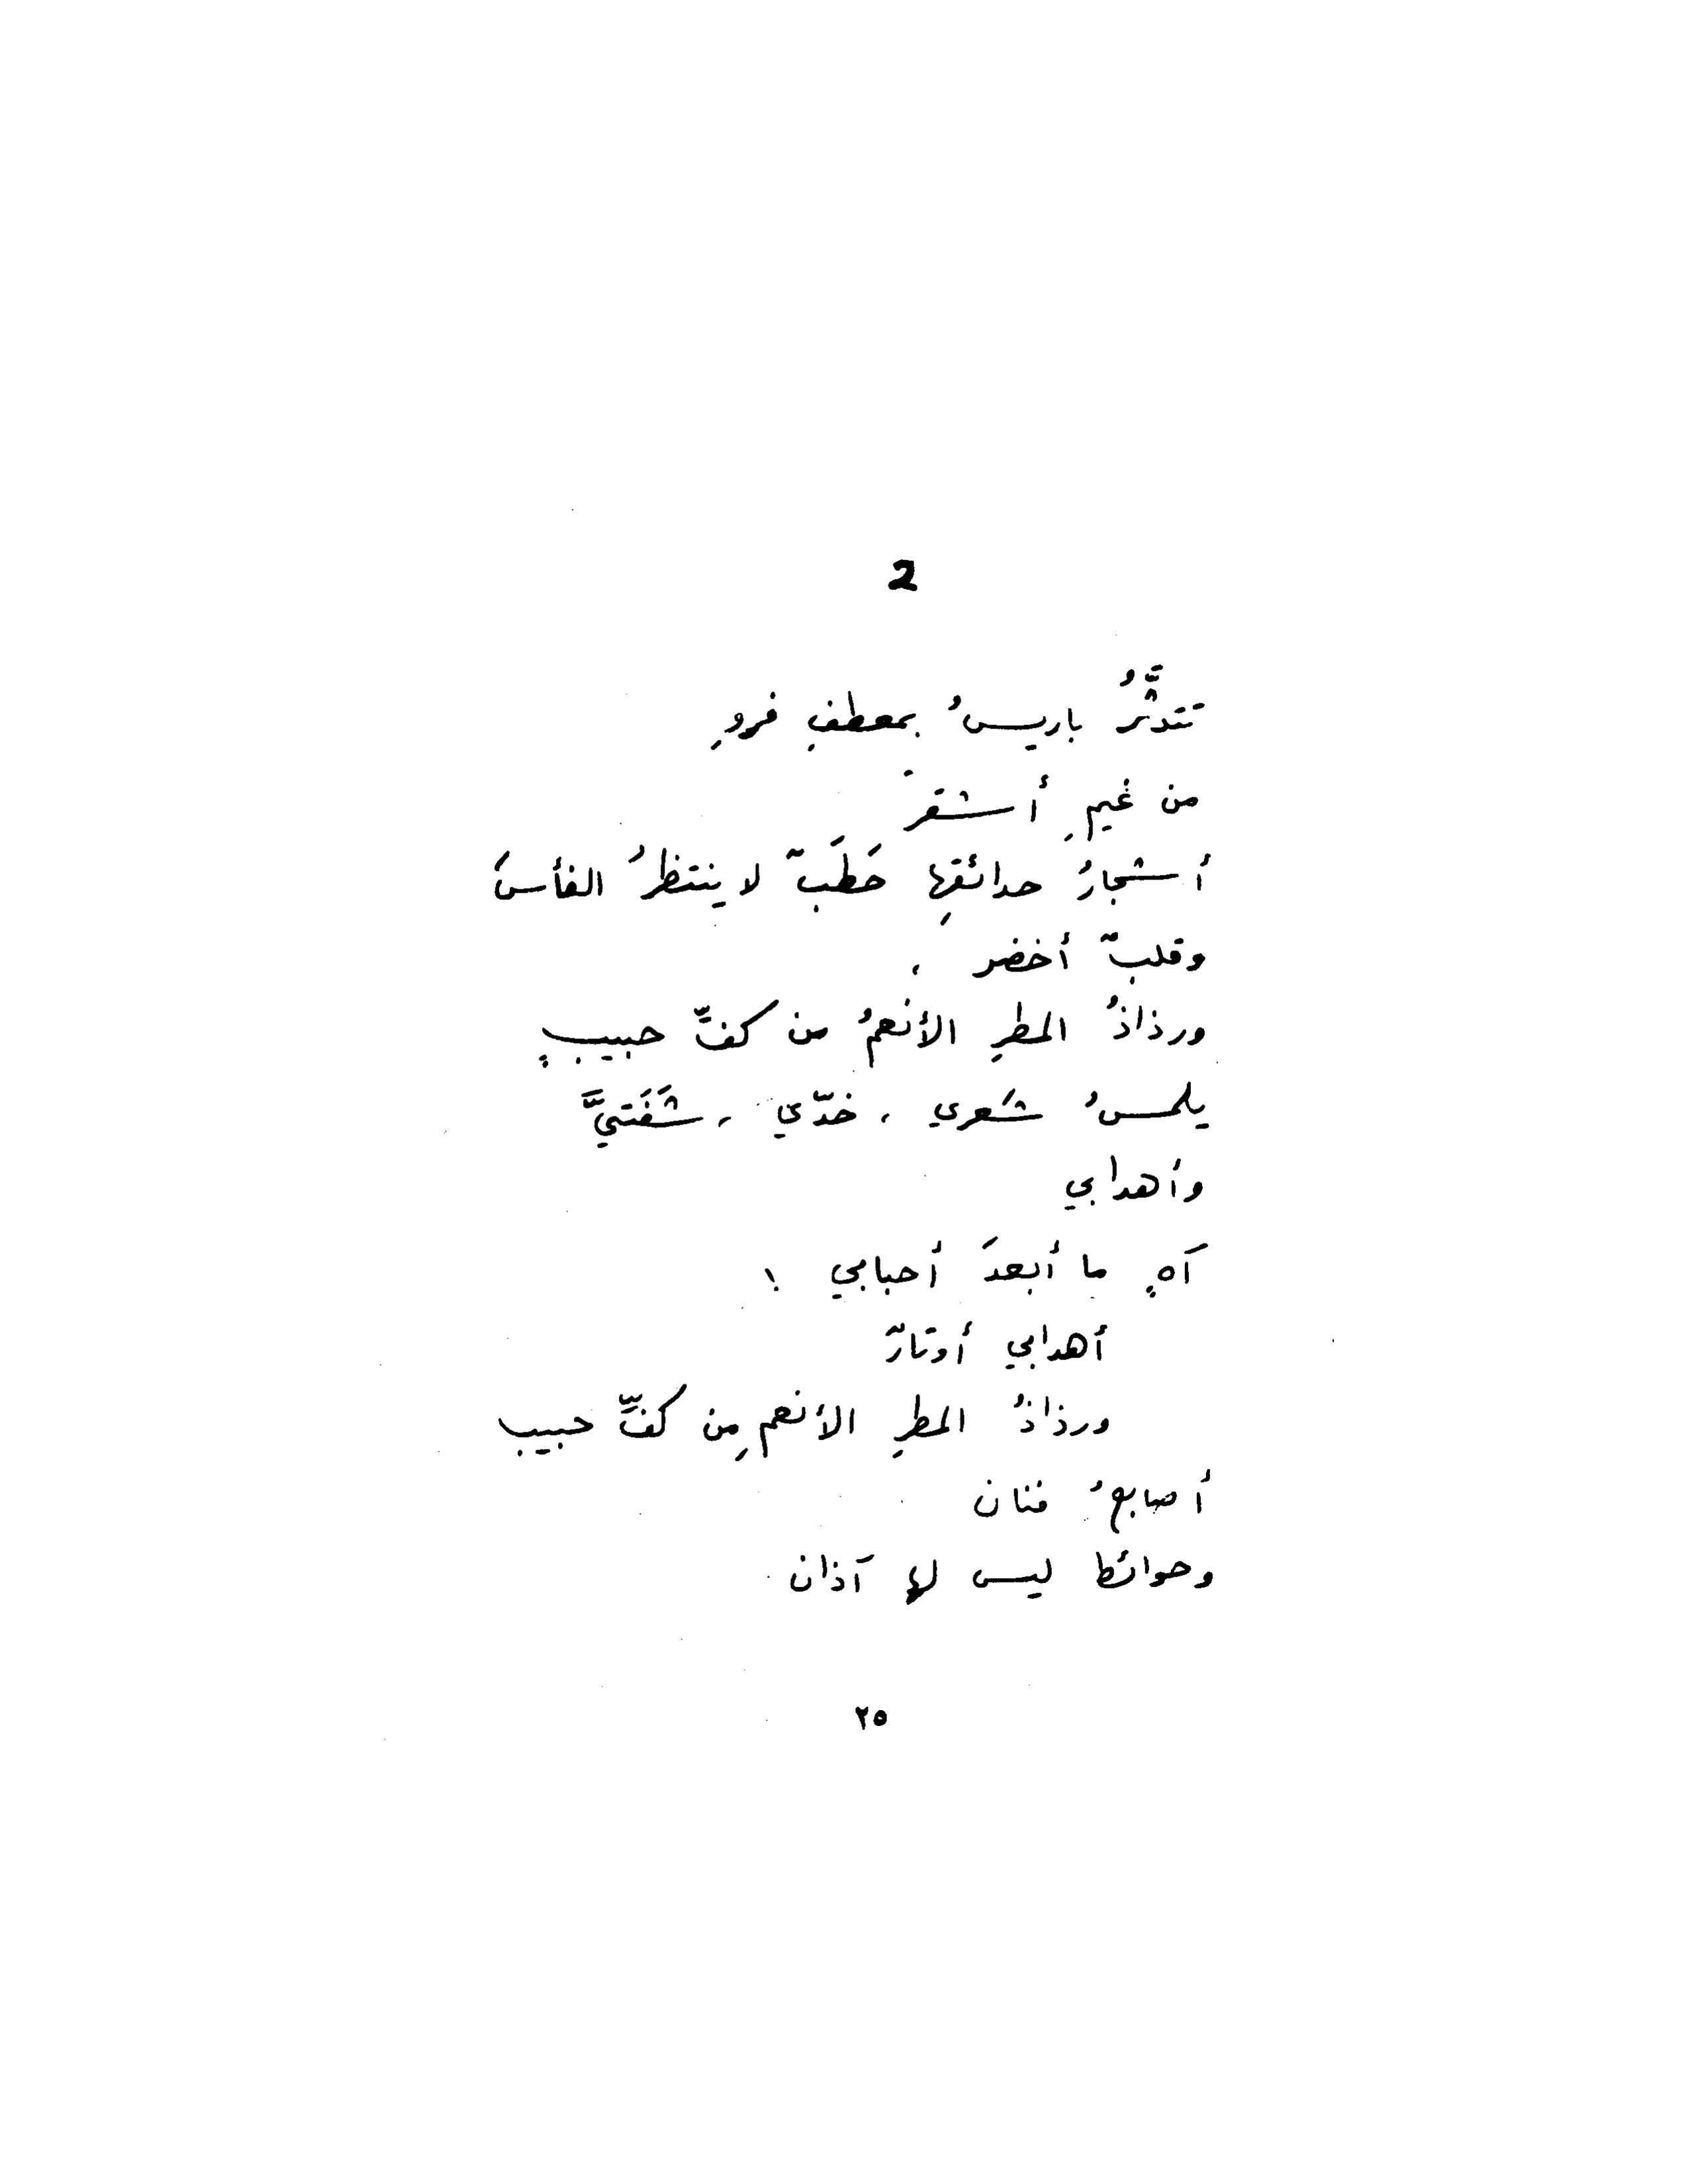 2
تتدثَّرُ باريسُ بمعطفِ فروِ
من غيمِ أشقرَ
أشجارُ حدائقِها حَطَبٌ لا ينتظرُ الفأسَ
وقلبٌ أخضر ،
ورذاذُ المطرِ الأنعمُ من كفِّ حبيبٍ
يلمسُ شَعري ، خدّي ، شَفَتيَّ
وأهدابي
آهٍ ما أبعدَ أحبابي !
أهدابي أوتارٌ
ورذاذُ المطرِ الأنعم مِن كفِّ حبيب
أصابعُ فنان
وحوائط ليس لها آذان .
٢٥